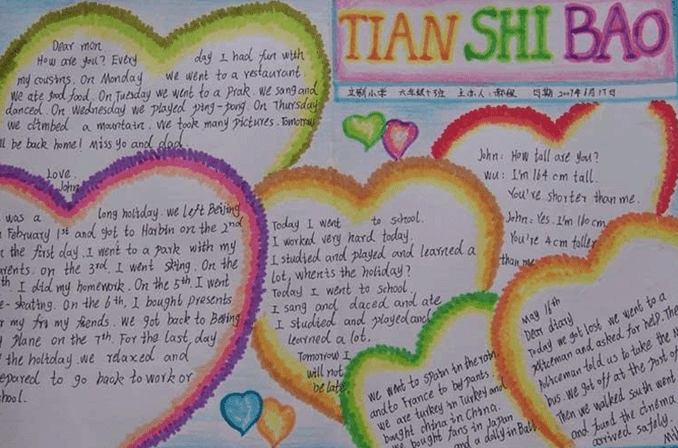 TIAN SHI BAO
Dear mon
How are you? Every day I had fun with
my cousins. On Monday we went to a restaurant.
We ate good food. On Tuesday we went to a prak. We sang and
danced. On Wednesday we played ping-pong. On Thursday
we climbed a mountain. We took many pictures. Tomorrow
ll be back home! Miss yo and dad.
Love.
John
was a long holiday. we left Beijing
February 1st and got to Harbin on the 2nd
the first day. I went to a park with my
rents. on the 3rd I went skiing. On the
th I did my homework. On the 5th I went
e-skating. On the 6th, I bought presents
r my fri my friends. we got back to Beijing
plane on the 7th. For the last day
the holiday we rdaxed and
epared to go back to work or
hool.
Today I went to school.
I worked very hard today.
I studied and played and learned a
lot, when's the holiday?
Today I went to school
I sang and daced and ate
I studied and played and
learned a lot.
Tomorrow I
will not
be late
John: How tall are you?
wu: I'm 164 cm tall.
You're shorter than me.
John: Yes. I'm 160 cm
You're 4 cm taller
than me
we went to spain in the rain
and to France to by pants.
we are turkey in Turkey and
bught china in China.
we bought fans in Japan
and a dolly in Bali
May 16th
Dear diary
Today we got lost. we went to a
policeman and asked for help. The
Policeman told us to take the
bus. we got off at the post of
Then we walked south went
and found the cinema
arrived safely.